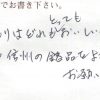 でお書き下さい。
とっても
りはどれかおいしい
信州の銘品をよ
お願い